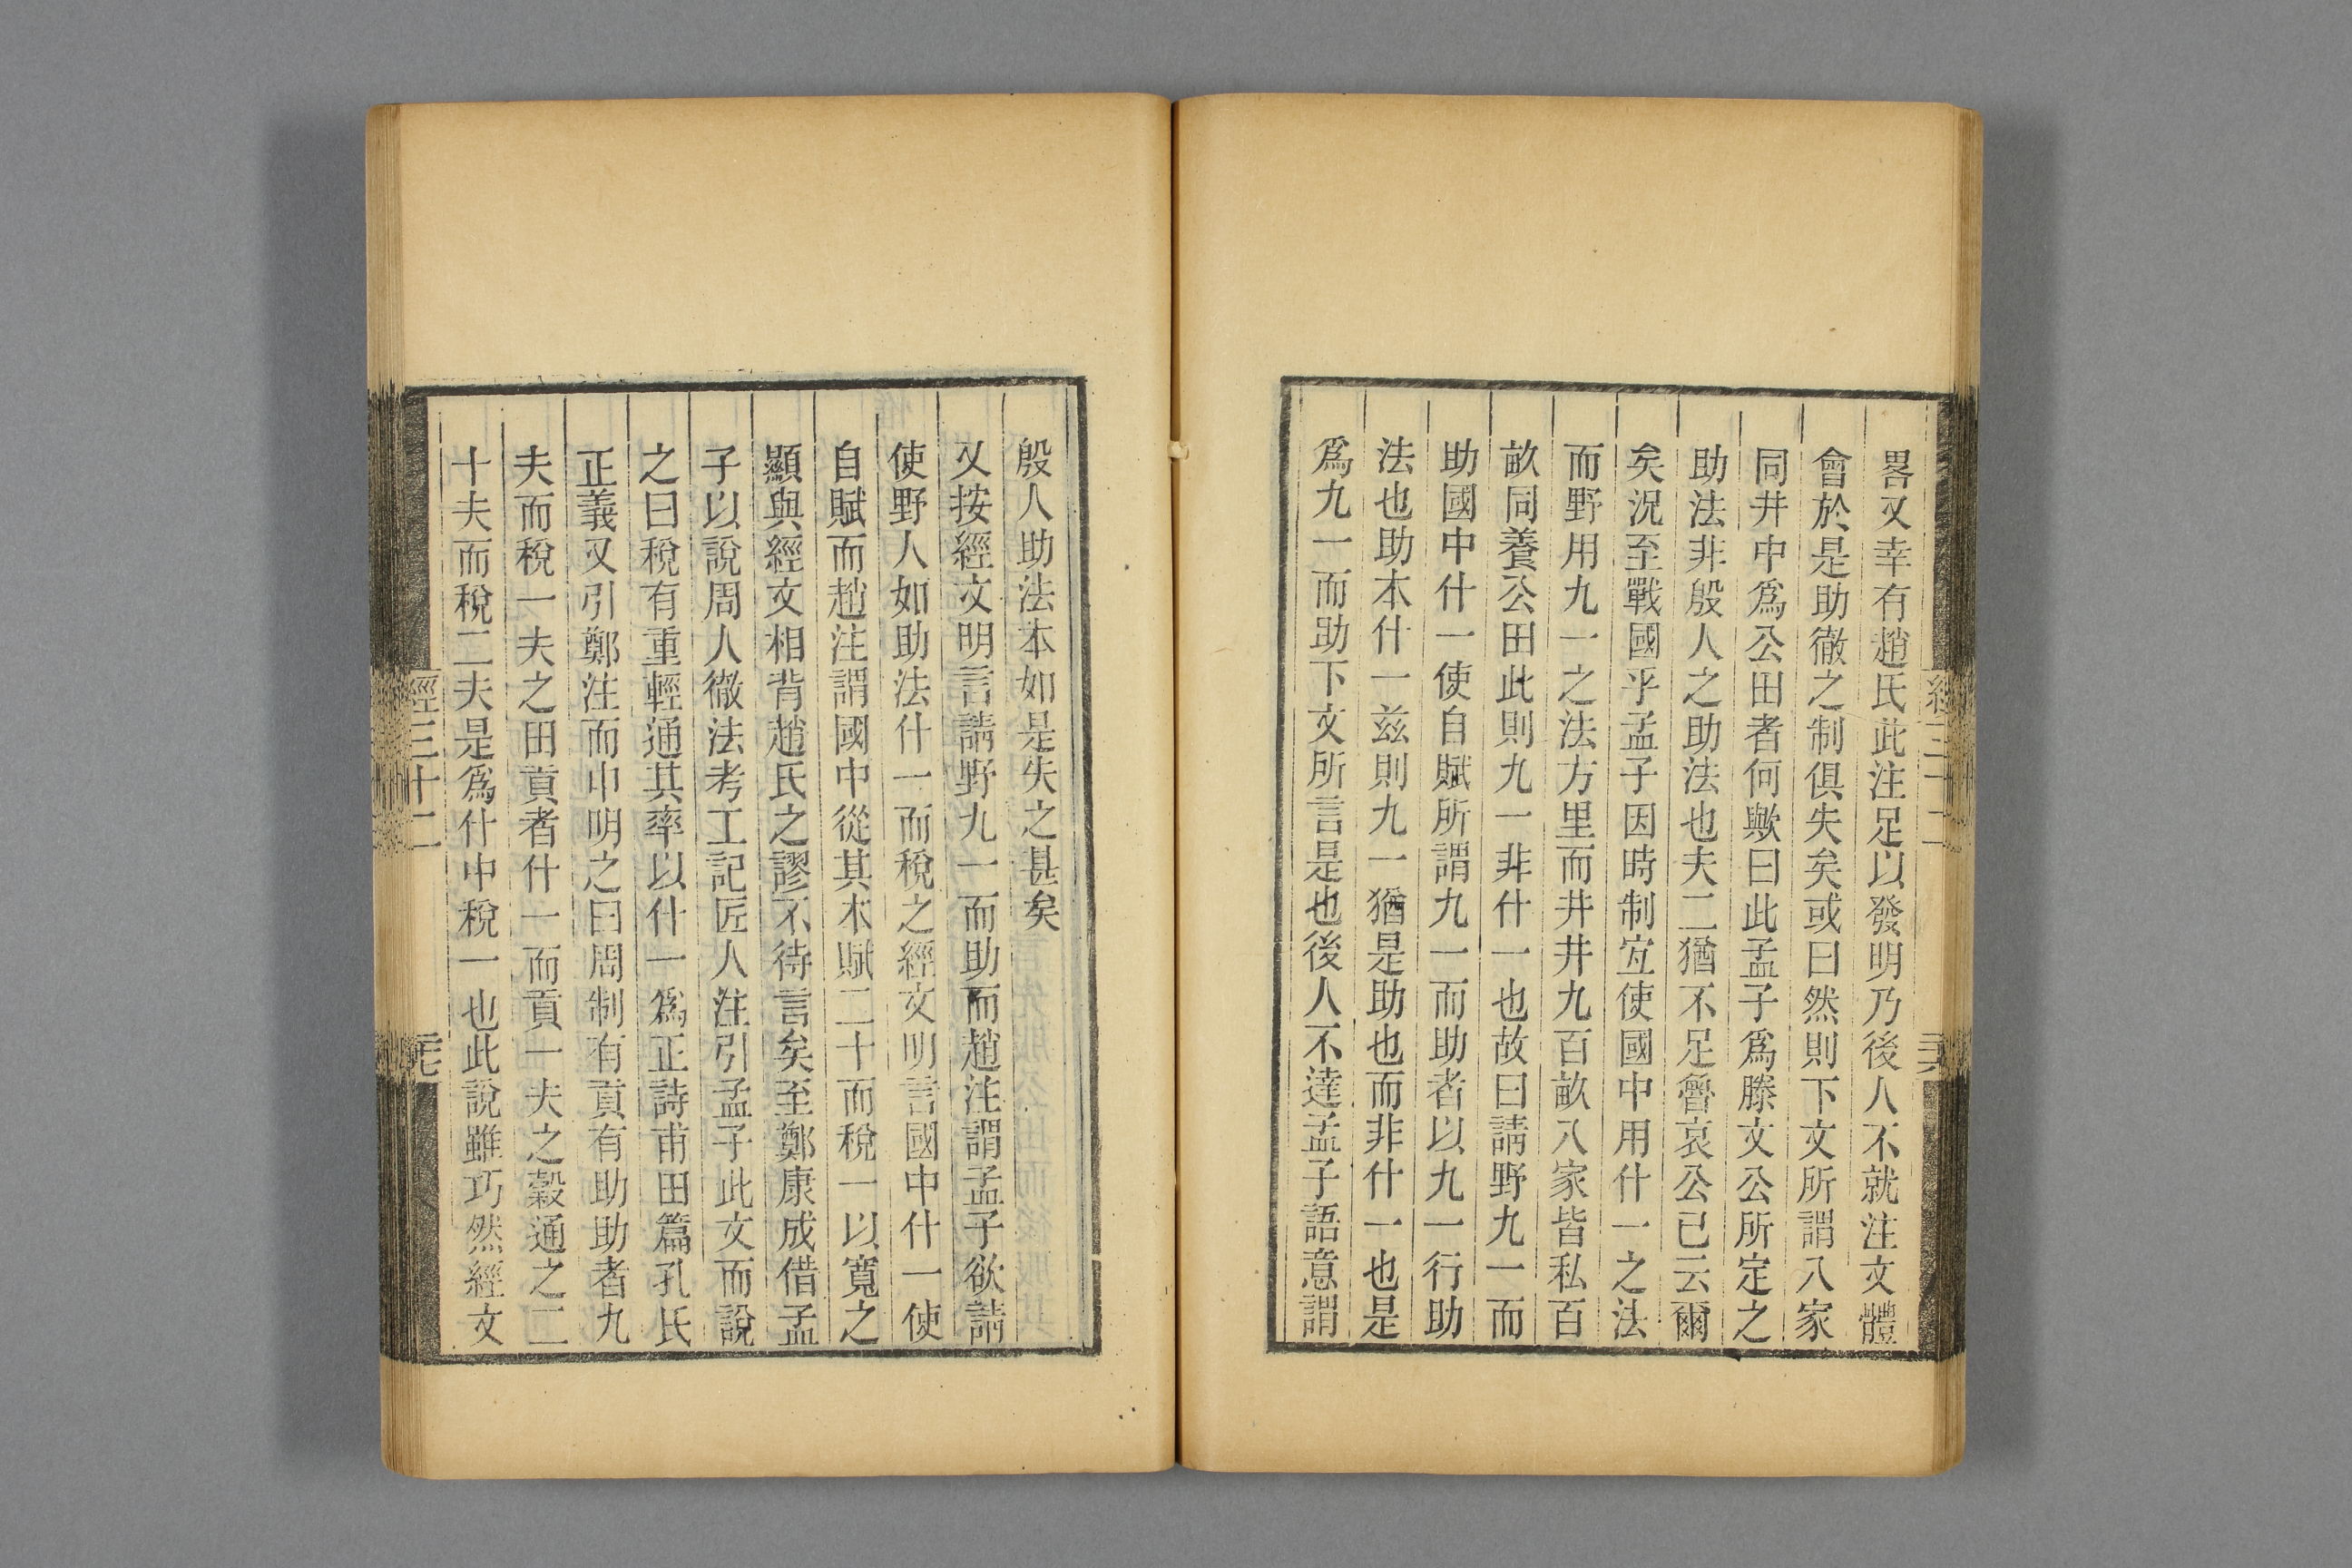 畧又幸有趙氏此注足以發明乃後人不就注文體
會於是助徹之制俱失矣或曰然則下文所謂八家
同井中爲公田者何歟曰此孟子爲滕文公所定之
助法非殷人之助法也夫二猶不足魯哀公已云爾
矣況至戰國乎孟子因時制宜使國中用什一之法
而野用九一之法方里而井井九百畝八家皆私百
畝同養公田此則九一非什一也故曰請野九一而
助國中什一使自賦所謂九一而助者以九一行助
法也助本什一兹則九一猶是助也而非什一也是
爲九一而助下文所言是也後人不達孟子語意謂
殷人助法本如是失之甚矣
又按經文明言請野九一而助而趙注謂孟子欲請
使野人如助法什一而稅之經文明言國中什一使
自賦而趙注謂國中從其本賦二十而稅一以寬之
顯與經文相背趙氏之謬不待言矣至鄭康成借孟
子以說周人徹法考工記匠人注引孟子此文而說
之曰稅有重輕通其率以什一爲正詩甫田篇孔氏
正義又引鄭注而申明之曰周制有貢有助助者九
夫而稅一夫之田貢者什一而貢一夫之穀通之二
十夫而稅二夫是爲什中稅一也此說雖巧然經文
經三十二